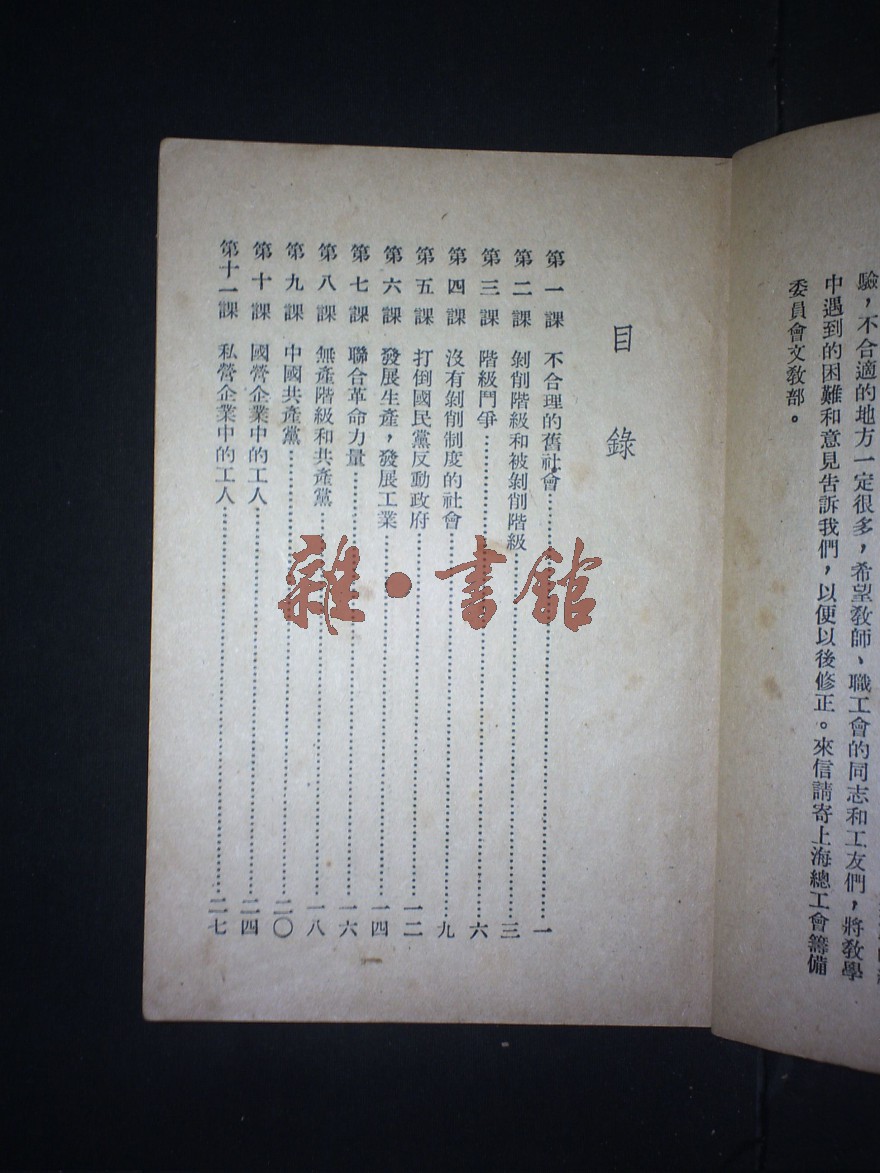 驗，不合適的地方一定很多，希望教師、職工會的同志和工友們，將教學
中遇到的困難和意見告訴我們，以便以後修正。來信請寄上海總工會籌備
委員會文教部。
目錄
第一課 不合理的舊社會⋯⋯一
第二課 剝削階級和被剝削階級⋯⋯三
第三課 階級鬥爭⋯⋯六
第四課 沒有剝削制度的社會⋯⋯九
第五課 打倒國民黨反動政府⋯⋯一二
第六課 發展生產，發展工業⋯⋯一四
第七課 聯合革命力量⋯⋯一六
第八課 無產階級和共產黨⋯⋯一八
第九課 中國共產黨⋯⋯二〇
第十課 國營企業中的工人⋯⋯二四
第十一課 私營企業中的工人⋯⋯二七
雜·書館